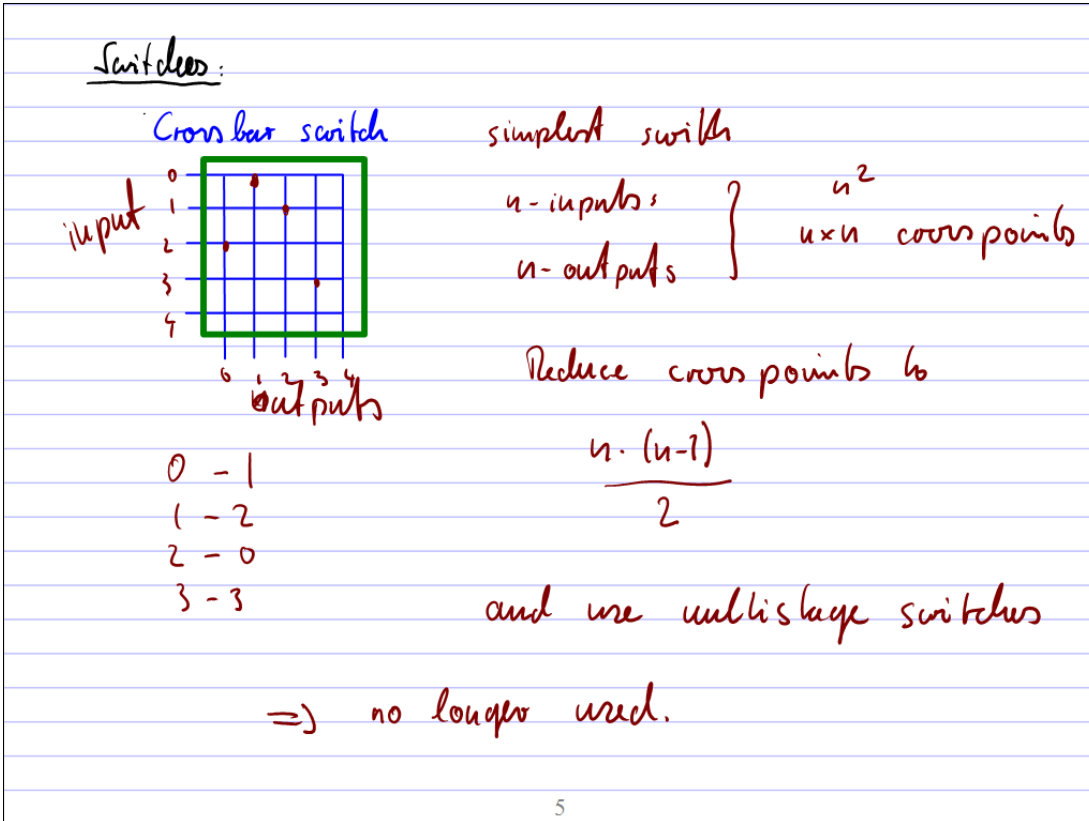 Switches:
Crossbar switch
input
0
1
2
3
4
0 1 2 3 4
outputs
0 - 1
1 - 2
2 - 0
3 - 3
simplest swith
n-inputs
n-outputs
n²
n×n crosspoints
Reduce crosspoints to
n·(n-1)
2
and use multistage switches
=> no longer used.
5